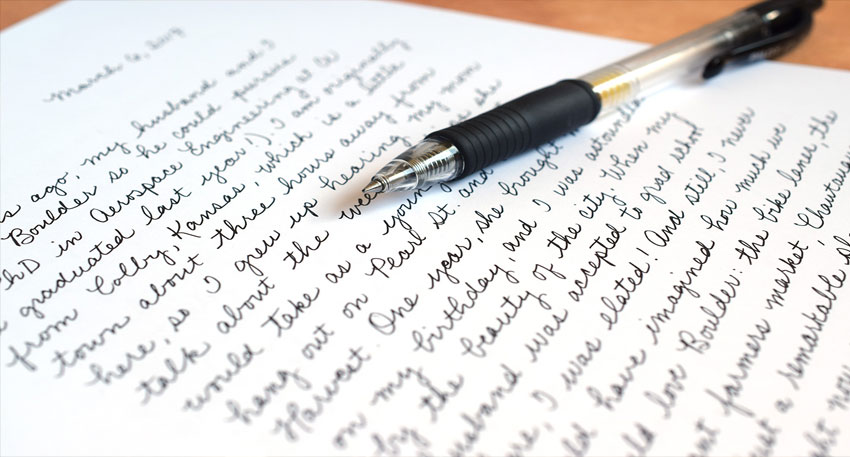 March 6,
ago, my husband and I
Boulder so he could pursue
PhD in Aerospace Engineering at CU
graduated last year!). I am originally
from Colby, Kansas, which is a little
town about three hours away from
here, so I grew up hearing my mom
talk about the wee she
would take as a young
hang out on Pearl St. and
Harvest. One year, she brought
on my birthday, and I was astounded
by the beauty of the city. When my
husband was accepted to grad school
here, I was elated! And still, I never
ld have imagined how much we
ld love Boulder: the bike lanes, the
ant farmers market, Chautauqua
ust a remarkable
right now